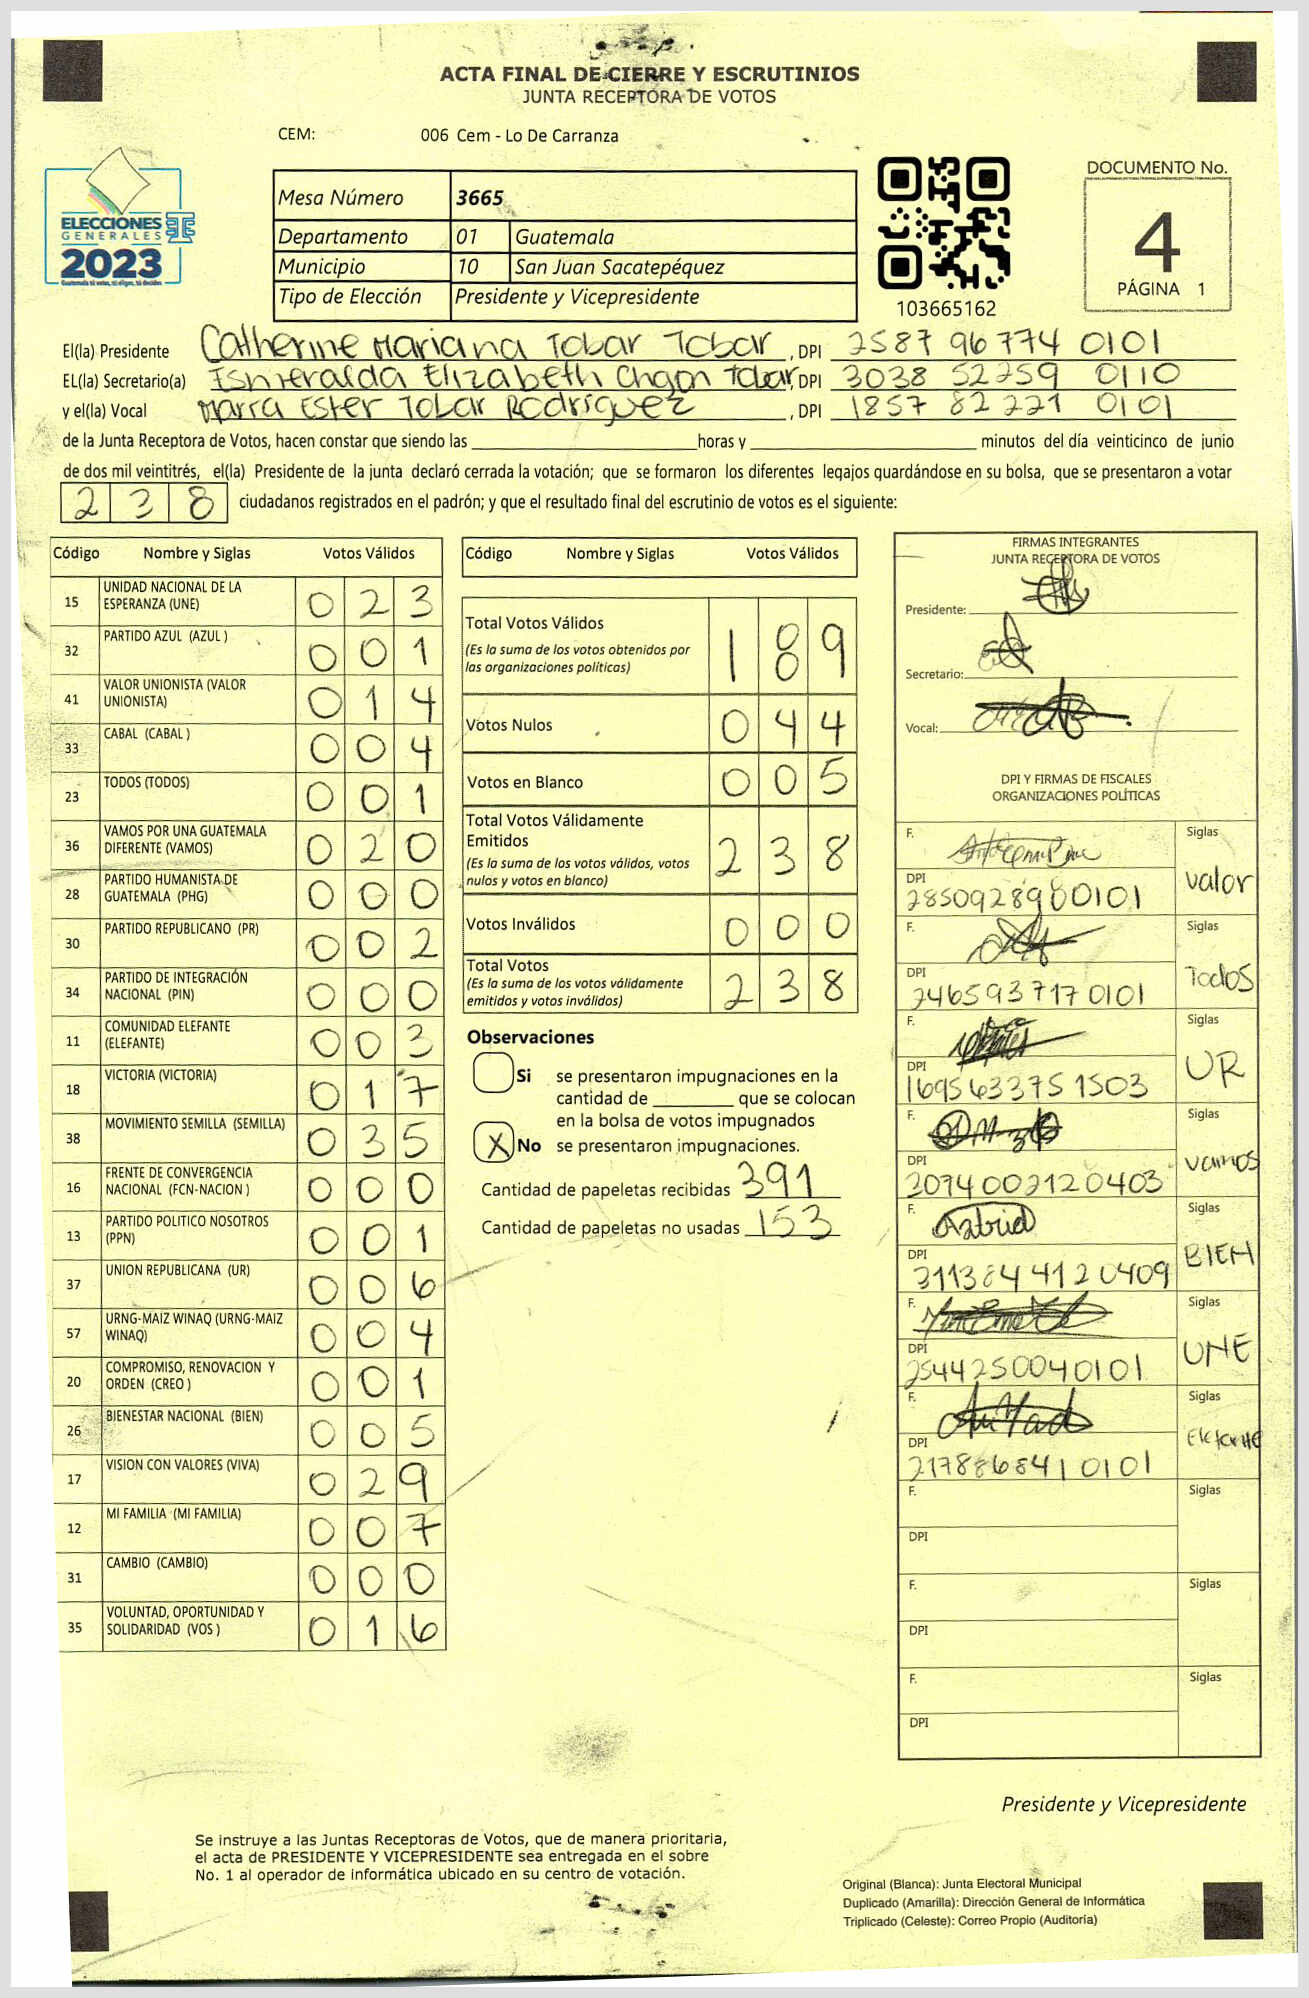 ACTA FINAL DE CIERRE Y ESCRUTINIOS
JUNTA RECEPTORA DE VOTOS
CEM: 006 Cem - Lo De Carranza
ELECCIONES
GENERALES
2023
Mesa Número 3665
Departamento 01 Guatemala
Municipio 10 San Juan Sacatepéquez
Tipo de Elección Presidente y Vicepresidente
103665162
DOCUMENTO No.
4
PÁGINA 1
El(la) Presidente Catherine Mariana Tobar Tobar, DPI 2587 96774 0101
EL(la) Secretario(a) Esmeralda Elizabeth Chgon Tobar, DPI 3038 52259 0110
y el(la) Vocal María Ester Tobar Rodríguez, DPI 1857 82221 0101
de la Junta Receptora de Votos, hacen constar que siendo las horas y minutos del día veinticinco de junio
de dos mil veintitrés, el(la) Presidente de la junta declaró cerrada la votación; que se formaron los diferentes legajos guardándose en su bolsa, que se presentaron a votar
238 ciudadanos registrados en el padrón; y que el resultado final del escrutinio de votos es el siguiente:
Código Nombre y Siglas Votos Válidos
15 UNIDAD NACIONAL DE LA ESPERANZA (UNE) 023
32 PARTIDO AZUL (AZUL ) 001
41 VALOR UNIONISTA (VALOR UNIONISTA) 014
33 CABAL (CABAL ) 004
23 TODOS (TODOS) 001
36 VAMOS POR UNA GUATEMALA DIFERENTE (VAMOS) 020
28 PARTIDO HUMANISTA DE GUATEMALA (PHG) 000
30 PARTIDO REPUBLICANO (PR) 002
34 PARTIDO DE INTEGRACIÓN NACIONAL (PIN) 000
11 COMUNIDAD ELEFANTE (ELEFANTE) 003
18 VICTORIA (VICTORIA) 017
38 MOVIMIENTO SEMILLA (SEMILLA) 035
16 FRENTE DE CONVERGENCIA NACIONAL (FCN-NACION ) 000
13 PARTIDO POLITICO NOSOTROS (PPN) 001
37 UNION REPUBLICANA (UR) 006
57 URNG-MAIZ WINAQ (URNG-MAIZ WINAQ) 004
20 COMPROMISO, RENOVACION Y ORDEN (CREO ) 001
26 BIENESTAR NACIONAL (BIEN) 005
17 VISION CON VALORES (VIVA) 029
12 MI FAMILIA (MI FAMILIA) 007
31 CAMBIO (CAMBIO) 000
35 VOLUNTAD, OPORTUNIDAD Y SOLIDARIDAD (VOS ) 016
Código Nombre y Siglas Votos Válidos
Total Votos Válidos 189
(Es la suma de los votos obtenidos por
las organizaciones políticas)
Votos Nulos 044
Votos en Blanco 005
Total Votos Válidamente
Emitidos 238
(Es la suma de los votos válidos, votos
nulos y votos en blanco)
Votos Inválidos 000
Total Votos 238
(Es la suma de los votos válidamente
emitidos y votos inválidos)
Observaciones
Si se presentaron impugnaciones en la
cantidad de que se colocan
en la bolsa de votos impugnados
X No se presentaron impugnaciones.
Cantidad de papeletas recibidas 391
Cantidad de papeletas no usadas 153
FIRMAS INTEGRANTES
JUNTA RECEPTORA DE VOTOS
Presidente:
Secretario:
Vocal:
DPI Y FIRMAS DE FISCALES
ORGANIZACIONES POLÍTICAS
F. Siglas
DPI 2850928980101 Valor
F. Siglas
DPI 2465937170101 Todos
F. Siglas
DPI 1695633751503 UR
F. Siglas
DPI 3074002120403 Vamos
F. Astrid Siglas
DPI 3113844120409 BIEN
F. Siglas
DPI 2544250040101 UNE
F. Siglas
DPI 2178868410101 Elefante
F. Siglas
DPI
F. Siglas
DPI
F. Siglas
DPI
Presidente y Vicepresidente
Se instruye a las Juntas Receptoras de Votos, que de manera prioritaria,
el acta de PRESIDENTE Y VICEPRESIDENTE sea entregada en el sobre
No. 1 al operador de informática ubicado en su centro de votación.
Original (Blanca): Junta Electoral Municipal
Duplicado (Amarilla): Dirección General de Informática
Triplicado (Celeste): Correo Propio (Auditoría)